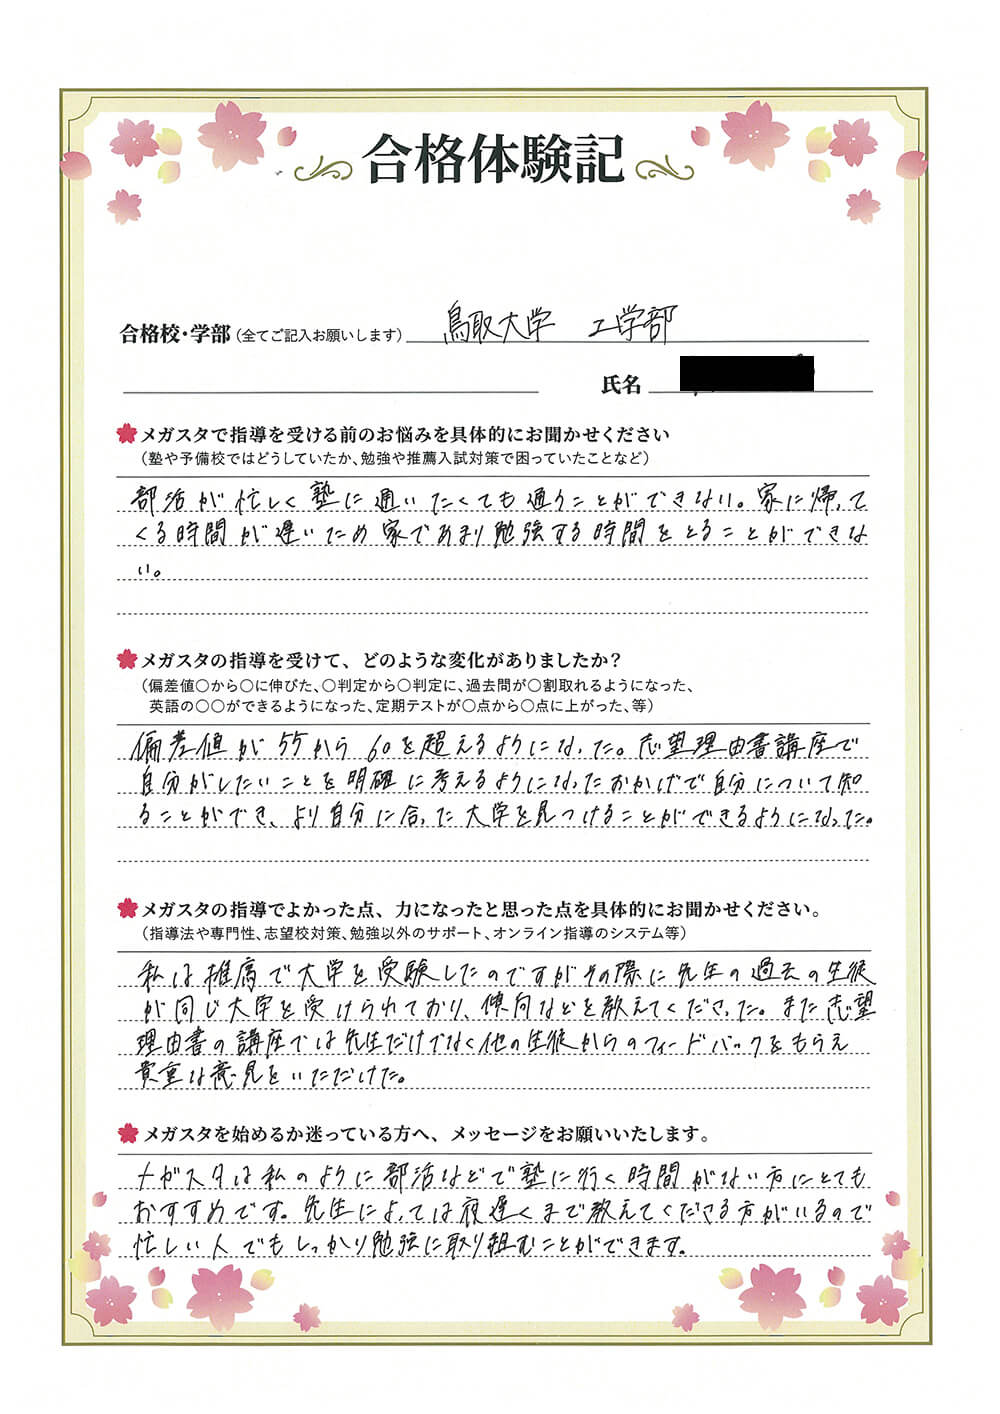 合格体験記
合格校・学部(全てご記入お願いします) 鳥取大学 工学部
氏名
メガスタで指導を受ける前のお悩みを具体的にお聞かせください
(塾や予備校ではどうしていたか、勉強や推薦入試対策で困っていたことなど)
部活が忙しく塾に通いたくても通うことができない。家に帰って
くる時間が遅いため家であまり勉強する時間をとることができな
い。
メガスタの指導を受けて、どのような変化がありましたか?
(偏差値○から○に伸びた、○判定から○判定に、過去問が○割取れるようになった、
英語の○○ができるようになった、定期テストが○点から○点に上がった、等)
偏差値が55から60を超えるようになった。志望理由書講座で
自分がしたいことを明確に考えるようになったおかげで自分について知
ることができ、より自分に合った大学を見つけることができるようになった。
メガスタの指導でよかった点、力になったと思った点を具体的にお聞かせください。
(指導法や専門性、志望校対策、勉強以外のサポート、オンライン指導のシステム等)
私は推薦で大学を受験したのですがその際に先生の過去の生徒
が同じ大学を受けられており、傾向などを教えてくださった。また志望
理由書の講座では先生だけでなく他の生徒からのフィードバックをもらえ
貴重な意見をいただけた。
メガスタを始めるか迷っている方へ、メッセージをお願いいたします。
メガスタは私のように部活などで塾に行く時間がない方にとても
おすすめです。先生によっては夜遅くまで教えてくださる方がいるので
忙しい人でもしっかり勉強に取り組むことができます。